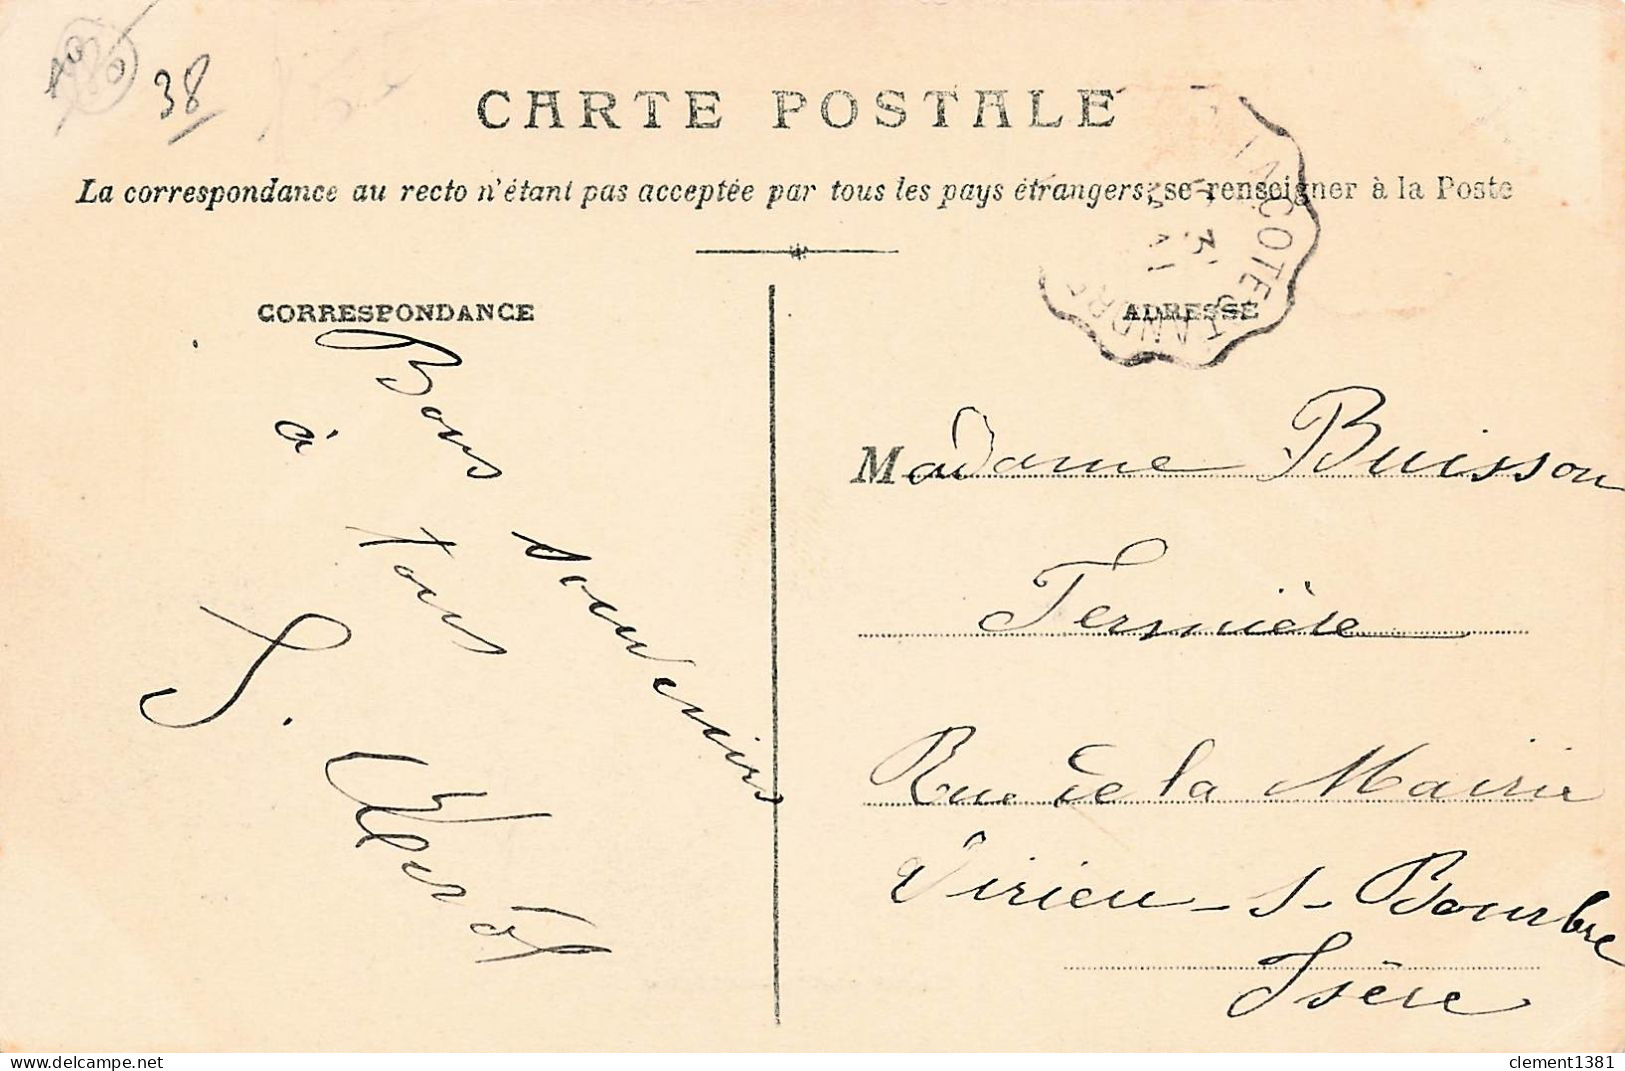 38
CARTE POSTALE
La correspondance au recto n'étant pas acceptée par tous les pays étrangers; se renseigner à la Poste
CORRESPONDANCE
Bons souvenirs
à tous
ADRESSE
Madame Buisson
Fermière
Rue de la Mairie
Virieu-s-Bourbre
Isère
LA COTE ST ANDRE
https://www.delcampe.net
clement1381